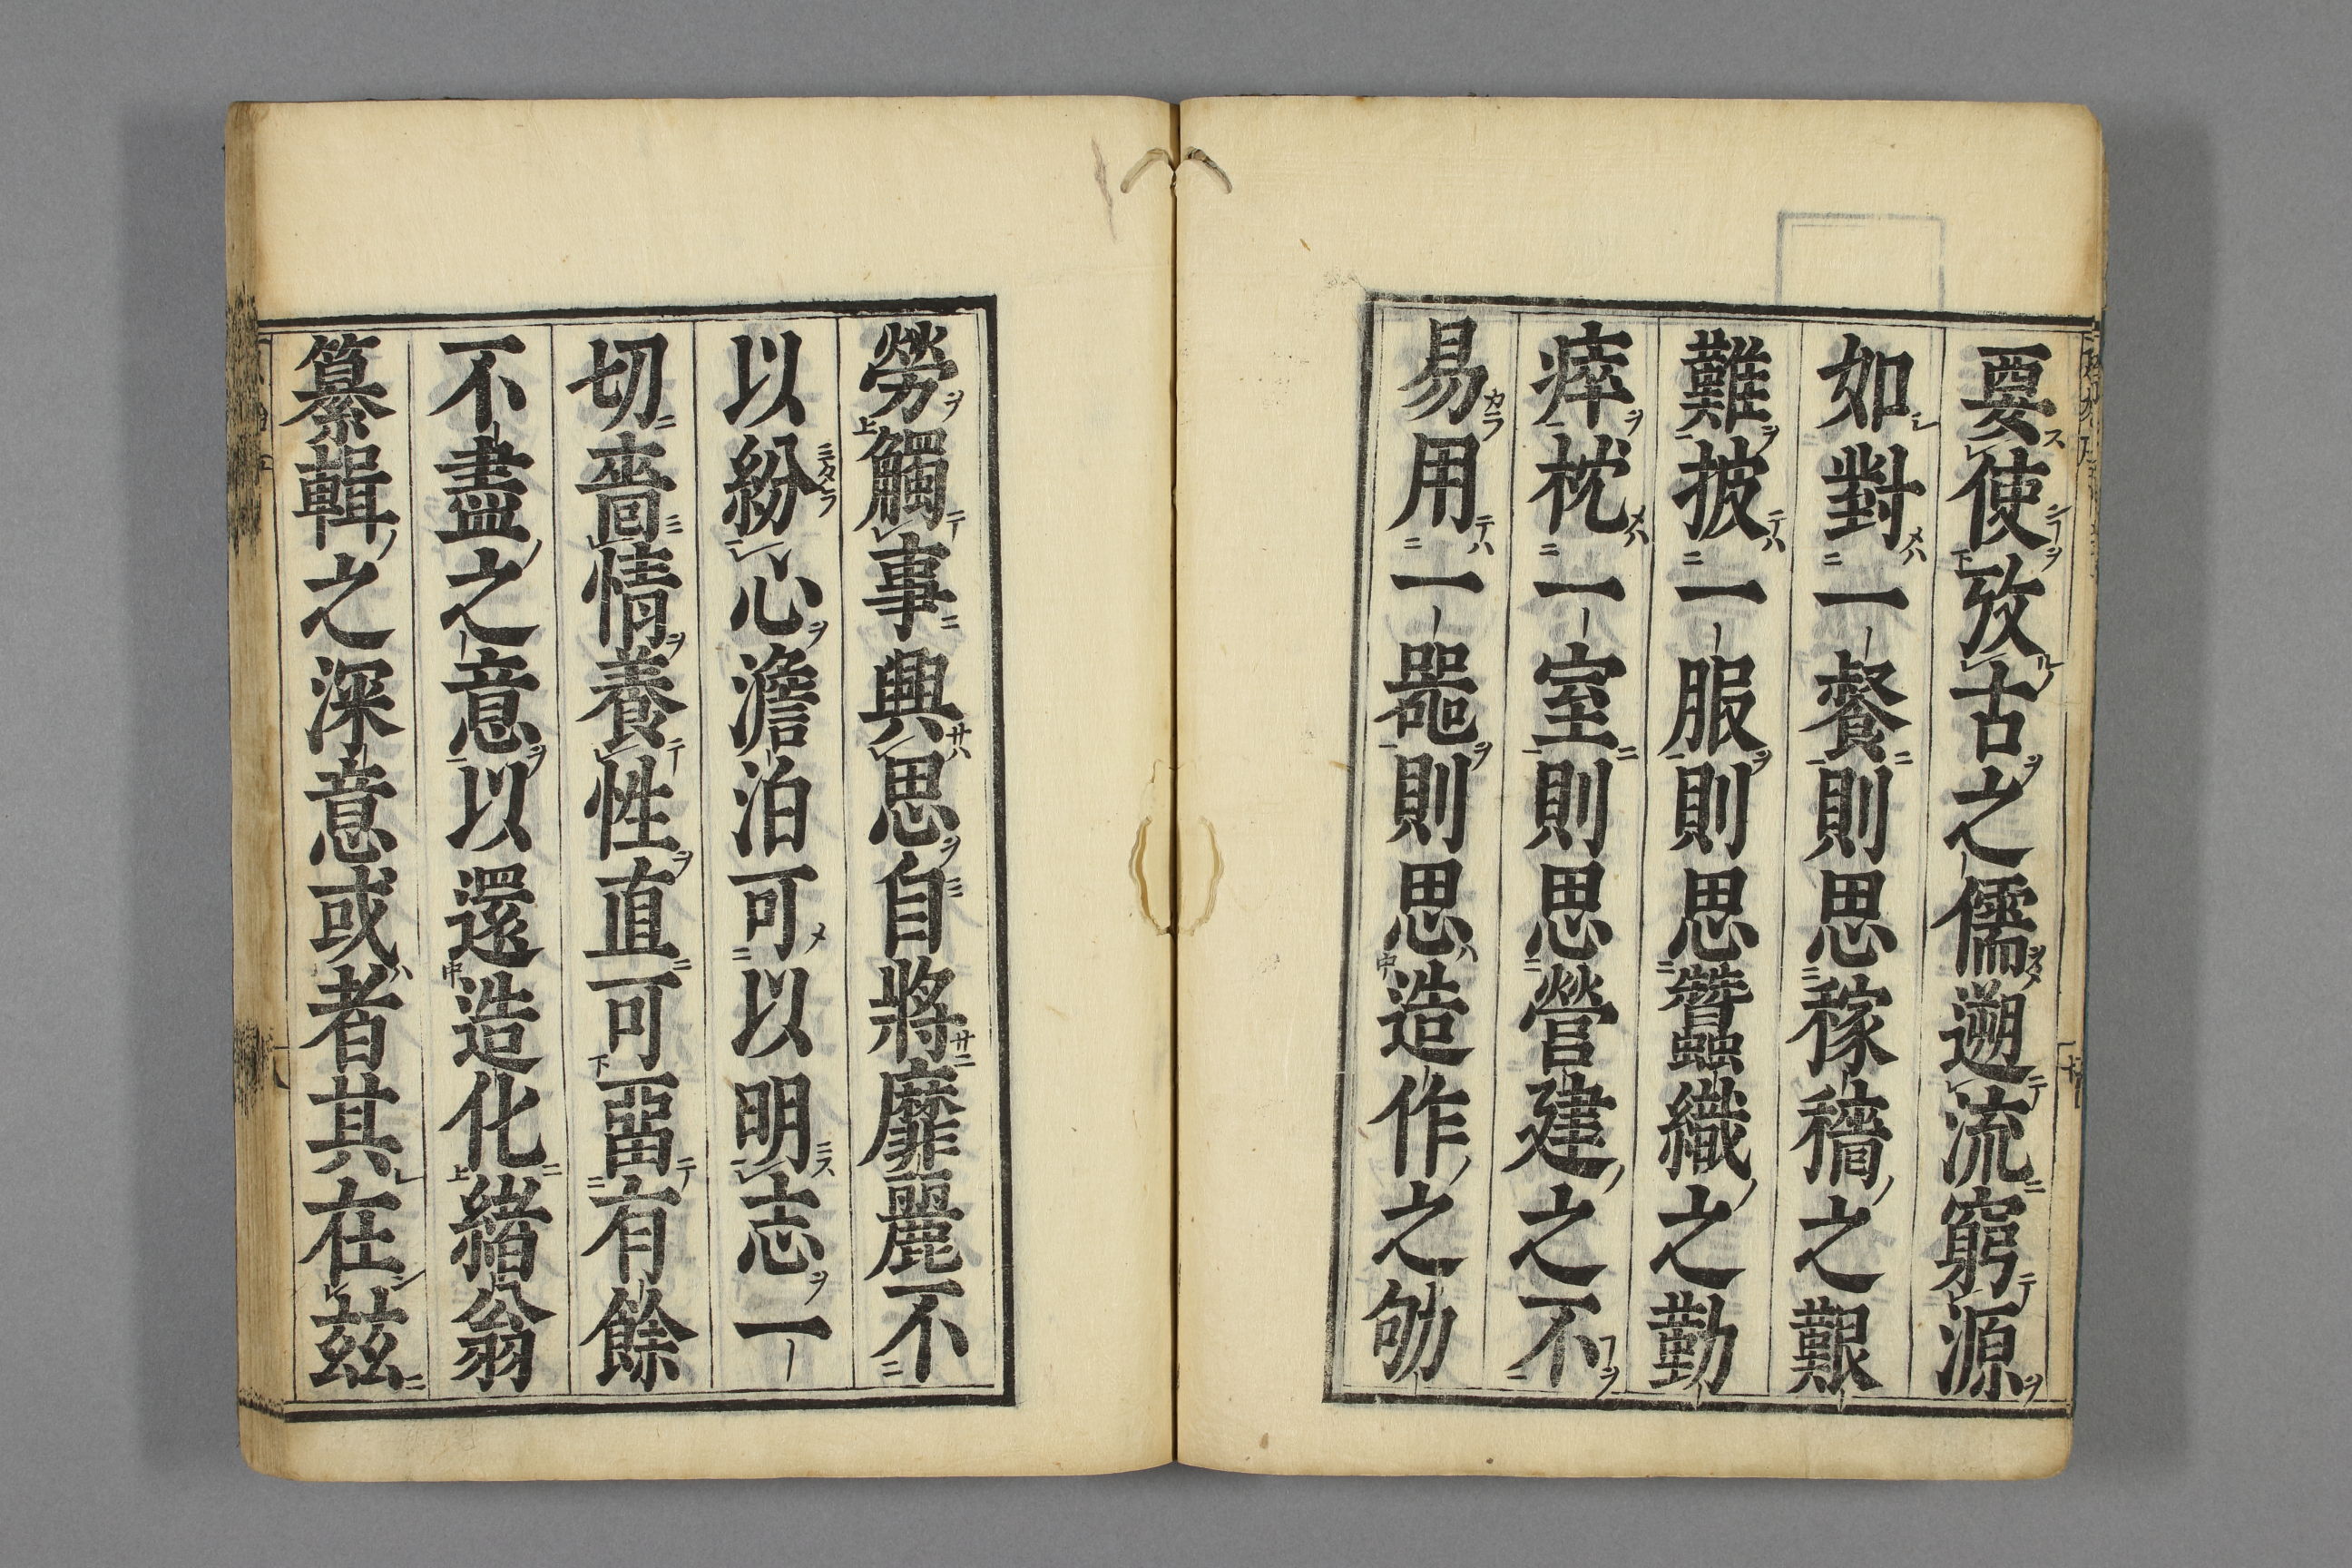 要使攷古之儒遡流窮源
如對一餐則思稼穡之艱
難披一服則思蠶織之勤
瘁枕一室則思營建之不
易用一噐則思造作之劬
勞觸事興思自將靡麗不
以紛心澹泊可以明志一
切嗇情養性直可畱有餘
不盡之意以還造化緒翁
纂輯之深意或者其在茲